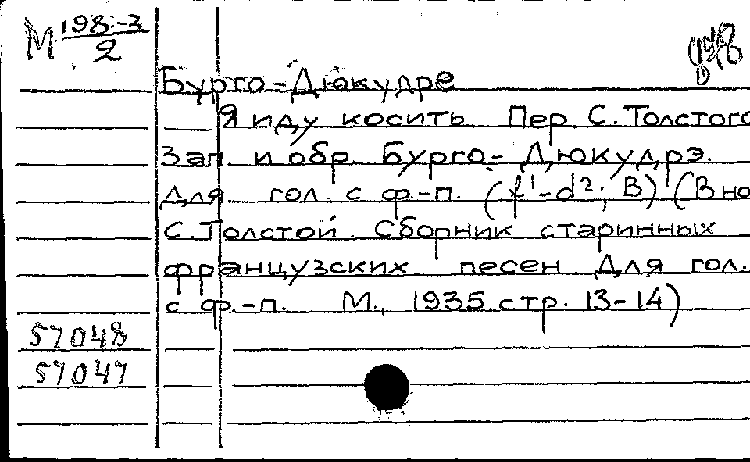 М 198-3
2
Бурго-Дюкудре
Я иду косить Пер. С. Толстого
Зап. и обр. Бурго-Дюкудрэ.
Для гол. с ф.-п. (f¹-d²; В) (В но
С. Толстой Сборник старинных
французских песен Для гол.
с ф.-п. М., 1935 стр. 13-14)
57048
57047